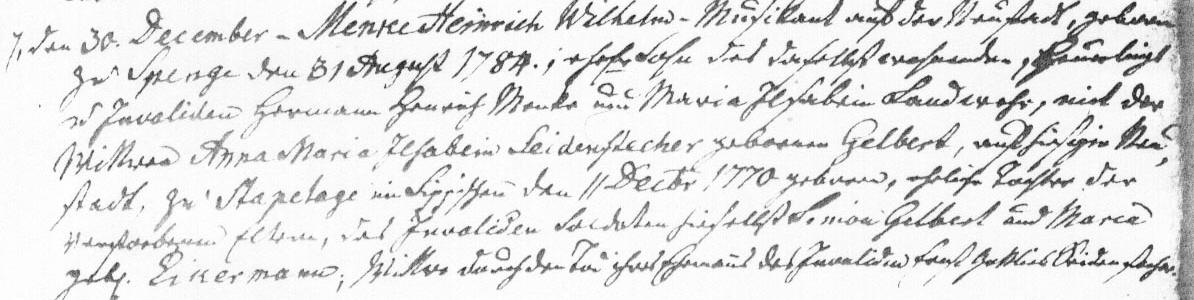 7, den 30. December - Menke Heinrich Wilhelm - Musikant auf der Neustadt, geboren
zu Spenge den 31 August 1784., ehel. Sohn des daselbst wohnenden, Heuerlings
u Invaliden Hermann Henrich Menke und Maria Ilsabein Landwehr, mit der
Wittwe Anna Maria Ilsabein Seidenstecher geborenen Gelbert, auf hiesiger Neu-
stadt, zu Stapelage im Lippischen den 11 Decbr 1770 geboren, eheliche Tochter der
verstorbenen Eltern, des Invaliden Soldaten hieselbst Simon Gelbert und Maria
geb. Eikermann; Wittwe durch den Tod ihres Ehemanns des Invaliden Ernst Gottlieb Seidenstecher.